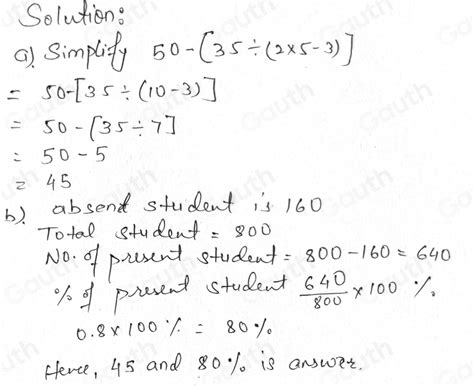 Solution:
a) Simplify 50-[35÷(2×5-3)]
= 50-[35÷(10-3)]
= 50-[35÷7]
= 50-5
= 45
b). absend student is 160
Total student = 800
No. of present student = 800-160 = 640
% of present student 640/800 ×100 %.
0.8×100% = 80%
Hence, 45 and 80% is answer.